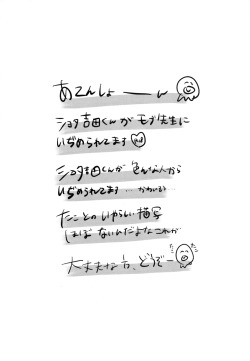 あてんしょーーん
ショタ吉田くんが モブ先生に
いぢめられてます
ショタ吉田くんが 色んな人から
いぢめられてます…かわいそ…
たことのいやらしい描写
ほぼ ないんだよなこれが
大丈夫な方、どうぞー
たこ
たこ